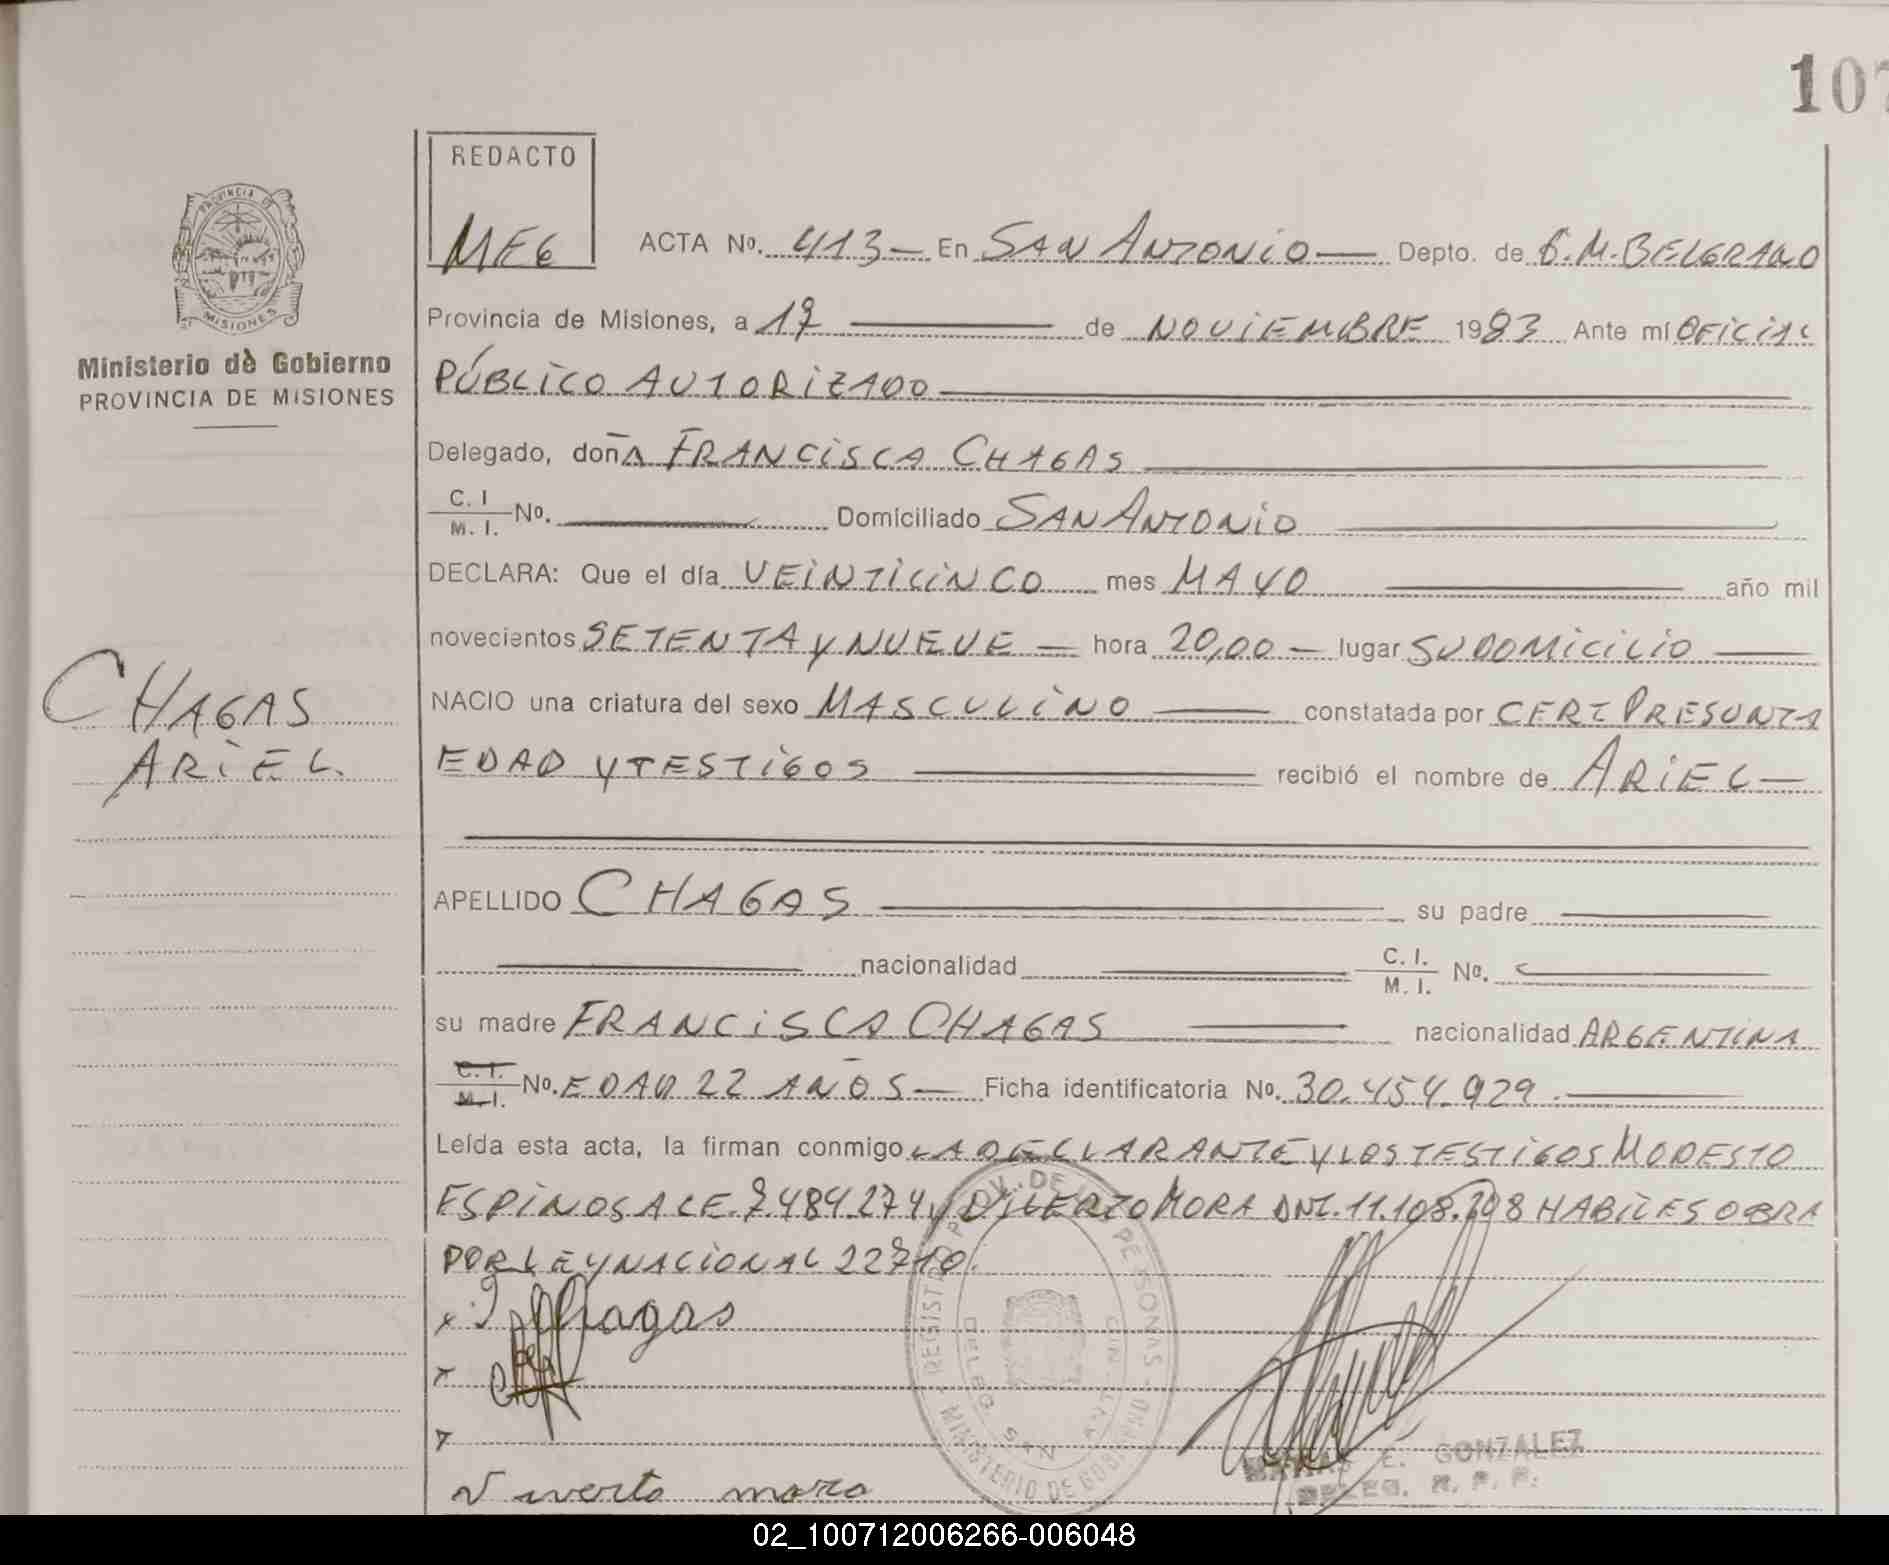 107
REDACTO
MEG
PROVINCIA DE
MISIONES
Ministerio de Gobierno
PROVINCIA DE MISIONES
ACTA No. 413 — En SAN ANTONIO — Depto. de G. M. BELGRANO
Provincia de Misiones, a 17 — de NOVIEMBRE 1983 Ante mí OFICIAL
PÚBLICO AUTORIZADO —
Delegado, doña FRANCISCA CHAGAS —
C. I / M. I. No. — Domiciliado SAN ANTONIO —
DECLARA: Que el día VEINTICINCO mes MAYO — año mil
novecientos SETENTA Y NUEVE — hora 20,00 — lugar SU DOMICILIO —
NACIO una criatura del sexo MASCULINO — constatada por CERT PRESUNTA
EDAD Y TESTIGOS — recibió el nombre de ARIEL —
CHAGAS
ARIEL
APELLIDO CHAGAS — su padre —
— nacionalidad — C. I. / M. I. No. —
su madre FRANCISCA CHAGAS — nacionalidad ARGENTINA
C. I. / M. I. No. EDAD 22 AÑOS — Ficha identificatoria No. 30.454.929. —
Leída esta acta, la firman conmigo LA DECLARANTE Y LOS TESTIGOS MODESTO
ESPINOSA LE. 7.484.274 y MORA DNI. 11.108. HABILES OBRA
POR LEY NACIONAL 22710.
x Chagas
x
x
mora
REGISTRO PROV. DE LAS PERSONAS
DELEG. SAN ANTONIO
MINISTERIO DE GOBIERNO
E. GONZALEZ
DELEG. R. P. P.
02_100712006266-006048